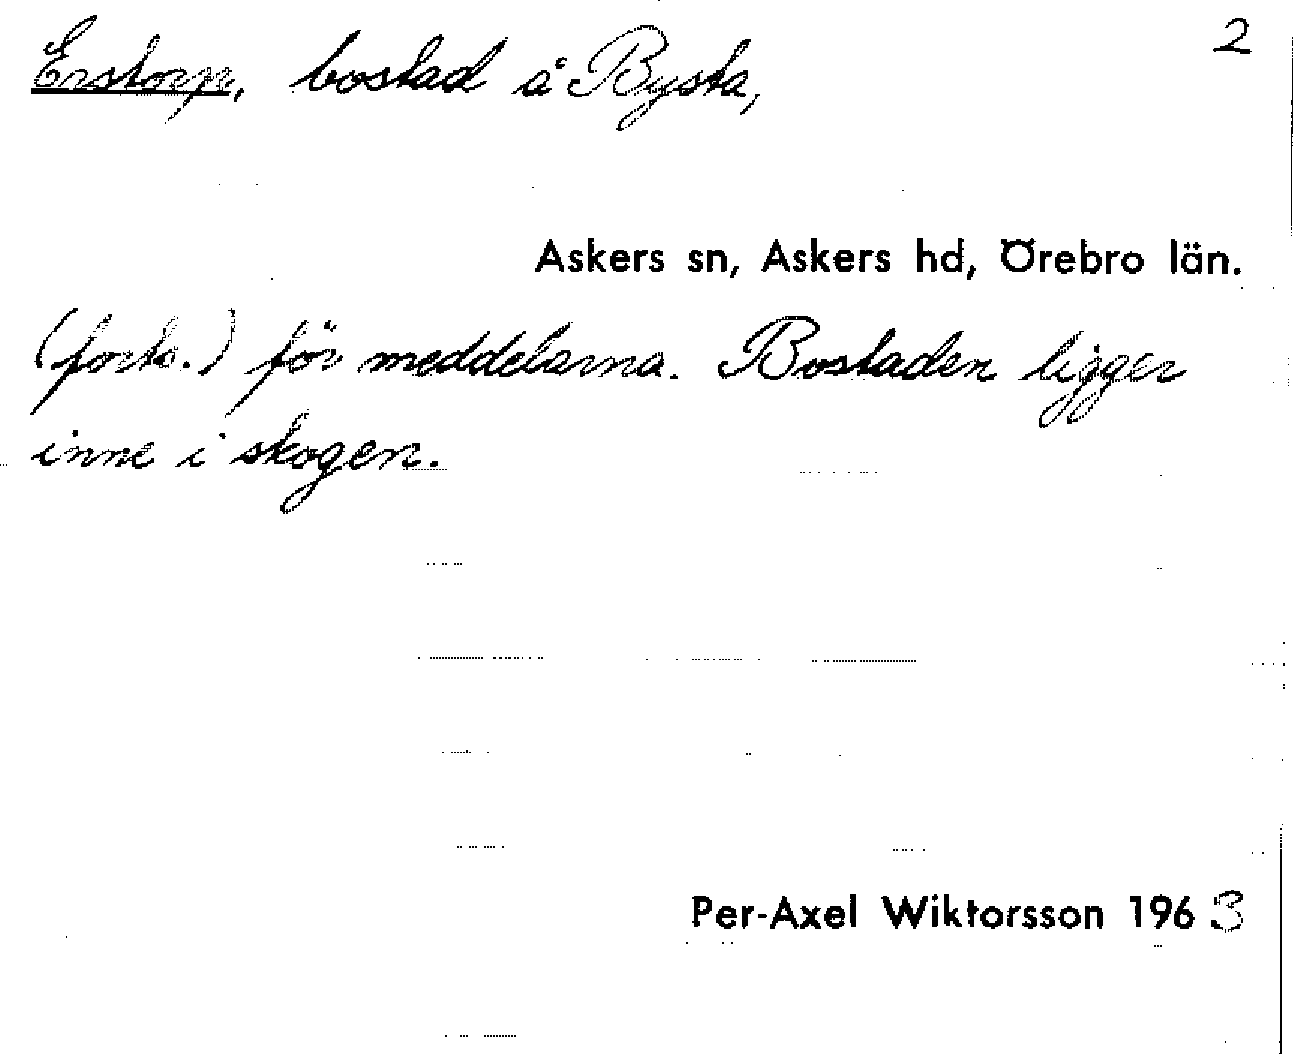 Erstorp, bostad å Bysta, 2
Askers sn, Askers hd, Örebro län.
(forts.) för meddelarna. Bostaden ligger
inne i skogen.
Per-Axel Wiktorsson 1963